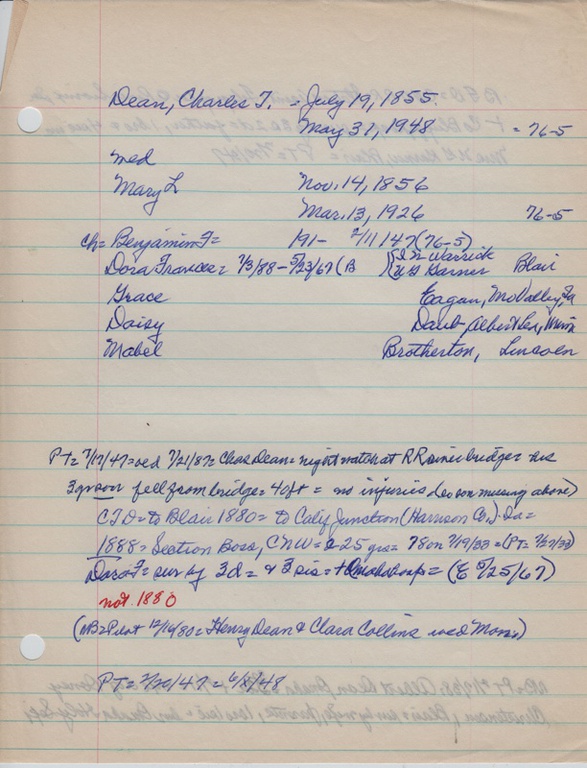 Dean, Charles T. - July 19, 1855.
May 31, 1948 = 76-5
med
Mary L Nov. 14, 1856
Mar. 13, 1926 76-5
ch= Benjamin F= 191- 2/11/47 (76-5)
Dora Frances= 7/3/88-5/23/67 (B { Warrick
Garner Blair
Grace Eagan, McValley, Ia
Daisy Daub, Albert Lea, Minn
Mabel Brotherton, Lincoln
PT= 7/17/47= 7/21/87= Chas Dean= night watch at RR bridge= his
3 yr son fell from bridge= 40 ft = no injuries (son missing above)
CTD= to Blair 1880= to Calif Junction (Harrison Co.) Ia=
1888= Section Boss, CNW= 25 yrs= 78 on 7/19/33= (PT= 7/27/33)
Dora F= sur by 3 d= & 3 sis= + (E 5/25/67)
not 1880
(NB= Pilot 12/16/80= Henry Dean & Clara Collins med)
PT= 2/20/47= 6/8/48